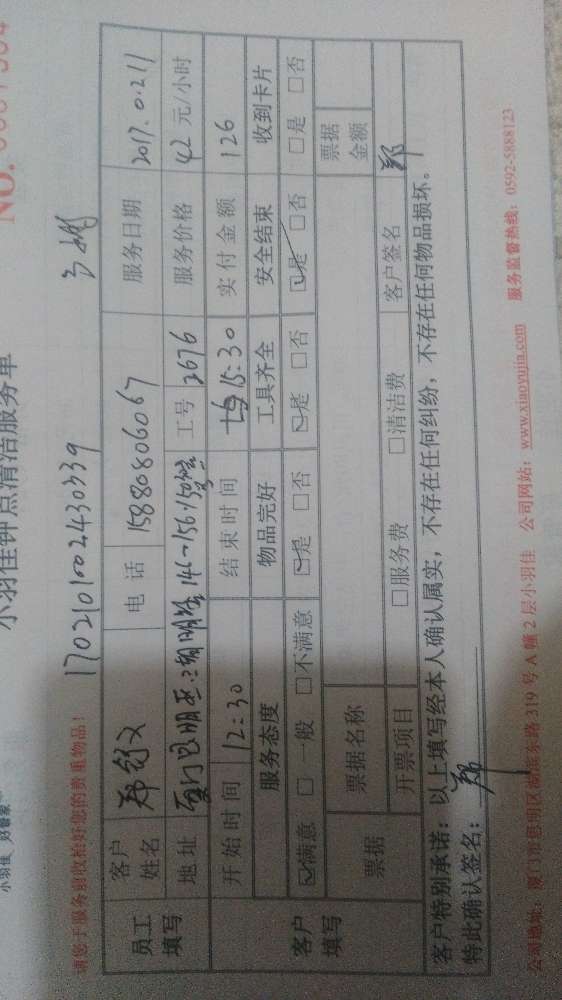 小羽佳 好管家
小羽佳钟点清洁服务单
NO.
请您于服务前收检好您的贵重物品!
1702101002430339
员工填写
客户姓名
电话 15880806067
服务日期 2017.0.211
地址
工号 2676
服务价格 42 元/小时
客户填写
开始时间 12:30
结束时间 15:30
实付金额 126
服务态度 物品完好 工具齐全 安全结束 收到卡片
☑满意 □一般 □不满意 ☑是 □否 ☑是 □否 ☑是 □否 □是 □否
票据 票据名称 票据金额
开票项目 □服务费 □清洁费 客户签名 郑
客户特别承诺:以上填写经本人确认属实,不存在任何纠纷,不存在任何物品损坏。
特此确认签名: 郑
公司地址:厦门市思明区湖滨东路319号A幢2层小羽佳 公司网站:www.xiaoyujia.com 服务监督热线:0592-5888123